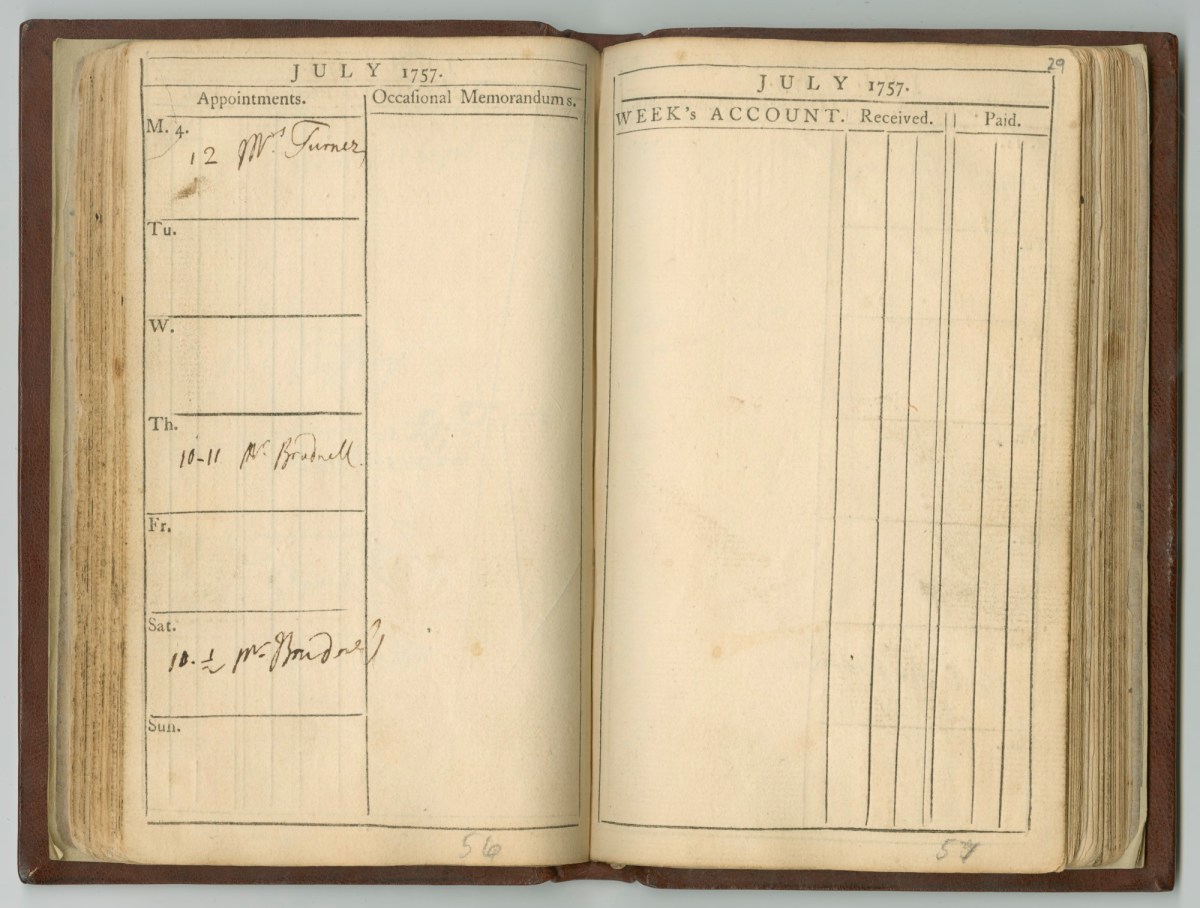 JULY 1757.
Appointments.
Occaſional Memorandums.
M. 4.
12 Mrs Turner
Tu.
W.
Th.
10-11 Mr Brudnell
Fr.
Sat.
10. ½ Mr Brudnell
Sun.
56
29
JULY 1757.
WEEK's ACCOUNT. Received. Paid.
57